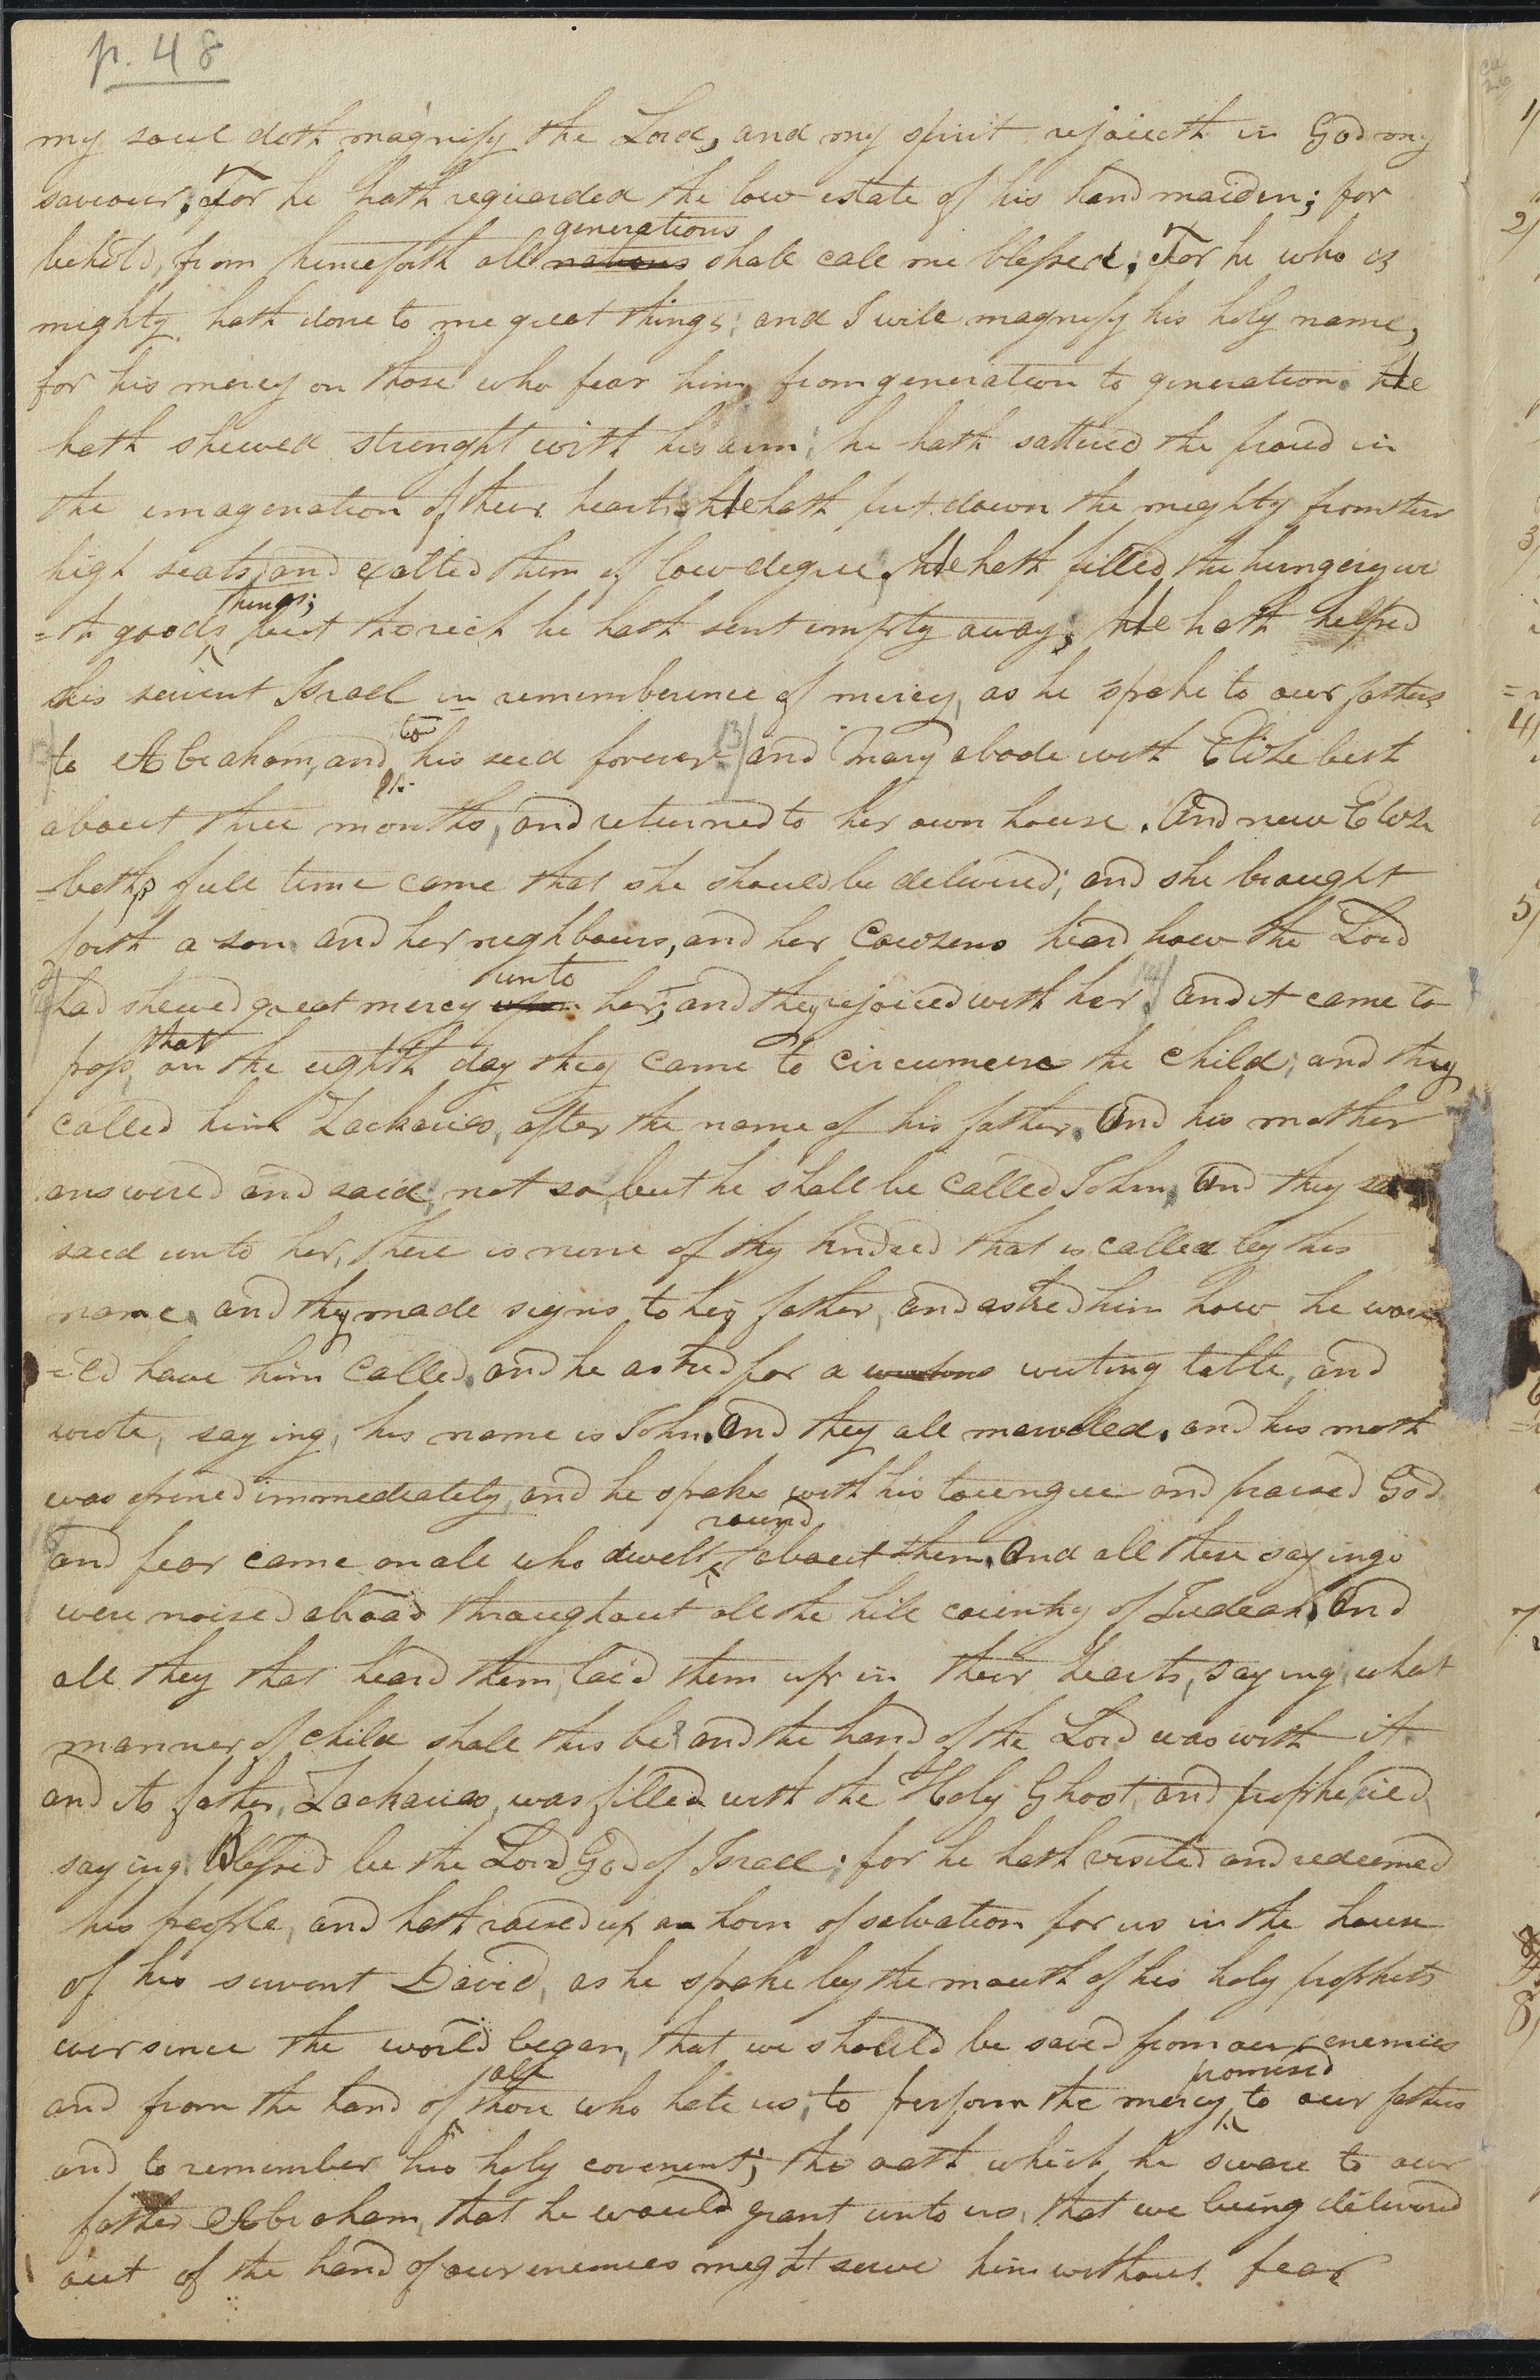 p. 48
my soul doth magnify the Lord, and my spirit rejoiceth in God my
saviour; For he hath reguarded the low estate of his handmaiden; for
generations
behold, from henceforth all nations shall call me blessed, For he who is
mighty, hath done to me great things; and I will magnify his holy name,
for his mercy on those who fear him, from generation to generation. He
hath shewed strenght with his arm; he hath sattered the proud in
the imagenation of their hearts. He hath put down the mighty from their
high seats, and exalted them of low degree. He hath filled the hungery wi
things;
=th goods, but the rich he hath sent empty away; He hath helped
his servent Israel in rememberence of mercy, as he spoke to our fathers
to
to Abraham, and his seed forever 13/ and Mary abode with Elizebeth
about three months, and returned to her own house. And now Elize
=beths full time came that she should be delivered; and she brought
forth a son. and her neghbours, and her cowzens heard how the Lord
unto
had shewed great mercy upon her; and they rejoiced with her 14/ and it came to
that
pass, on the eighth day they came to circumcise the child; and they
called him Zacharias, after the name of his father. And his mother
answered and said, not so, but he shall be called John, And they
said unto her, there is none of thy kindred that is called by this
name. and they made signs to his father, and asked him how he wou
=ld have him called. and he asked for a writing table, and
wrote, saying, his name is John. And they all marveled. and his moth
was opened immediately, and he spake with his toungue and praised God
round
and fear came on all who dwelt about them. And all these sayings
were noised abroad throughout all the hill country of Judeah. And
all they that heard them, laid them up in their hearts, saying, what
manner of child shall this be? and the hand of the Lord was with it
and its father, Zacharias, was filled with the Holy Ghost, and prophecied,
saying Blessed be the Lord God of Israel; for he hath visited and redeemed
his people, and hath raised up an horn of salvation for us in the house
of his servent David, as he spoke by the mouth of his holy prophets
ever since the world began, that we should be saved from our enemies
all
promised
and from the hand of those who hate us; to perform the mercy to our fathers
and to remember his holy covenent; the oath which he sware to our
father Abraham, that he would grant unto us, that we being delivered
out of the hand of our enemies might serve him without fear